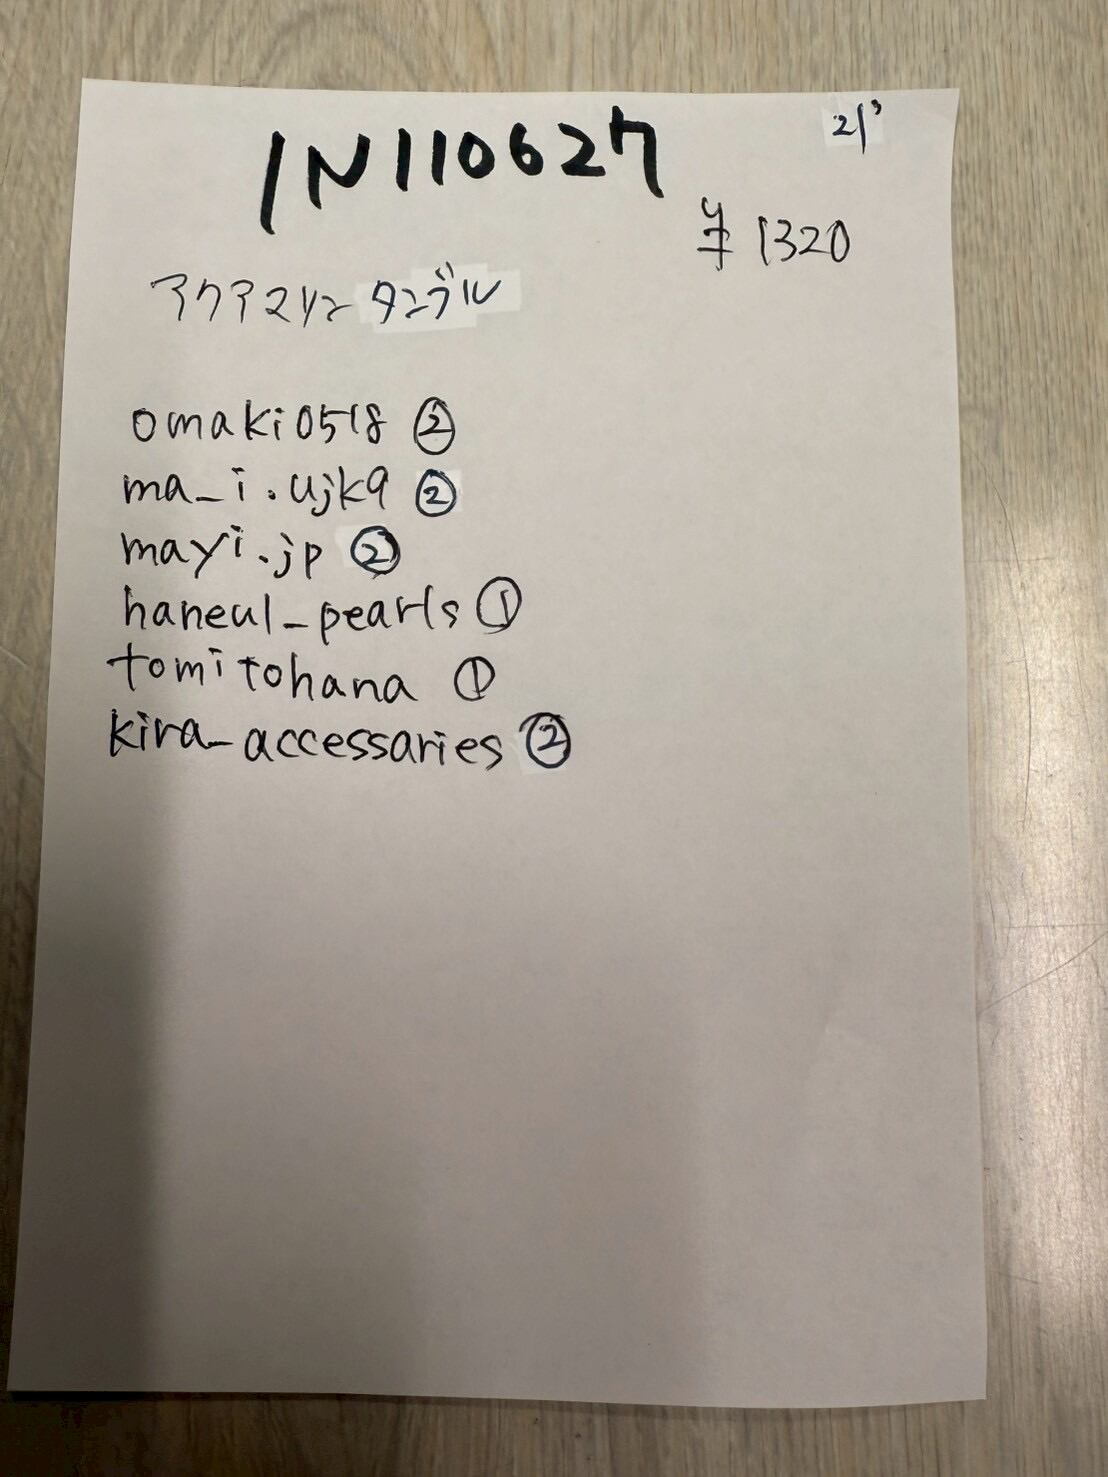 IN110627
21'
¥1320
アクアマリンタンブル
omaki0518 ②
ma_i.ujk9 ②
mayi.jp ②
haneul_pearls ①
tomitohana ①
kira_accessaries ②